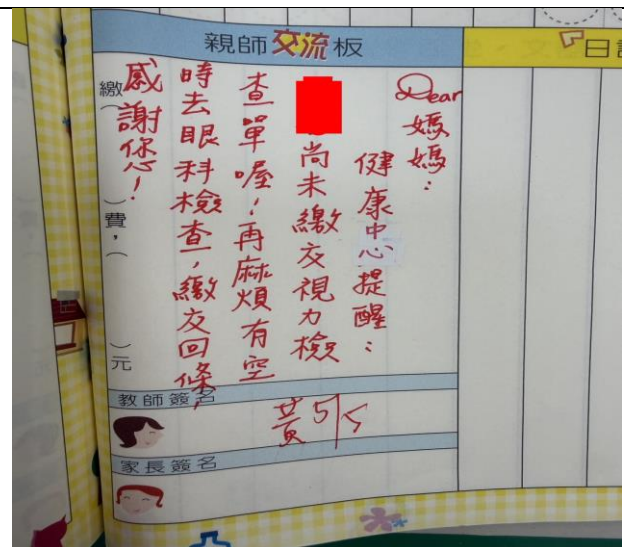 親師交流板
日
Dear
媽媽：
健康中心提醒：
尚未繳交視力檢
查單喔！再麻煩有空
時去眼科檢查，繳交回條，
感謝您！
繳（　　）費，（　　）元
教師簽名
黃 5/5
家長簽名